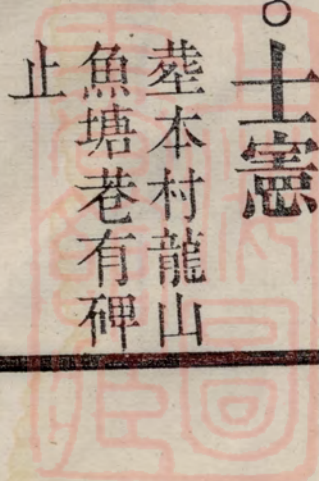 ○士憲
塟本村龍山
魚塘巷有碑
止